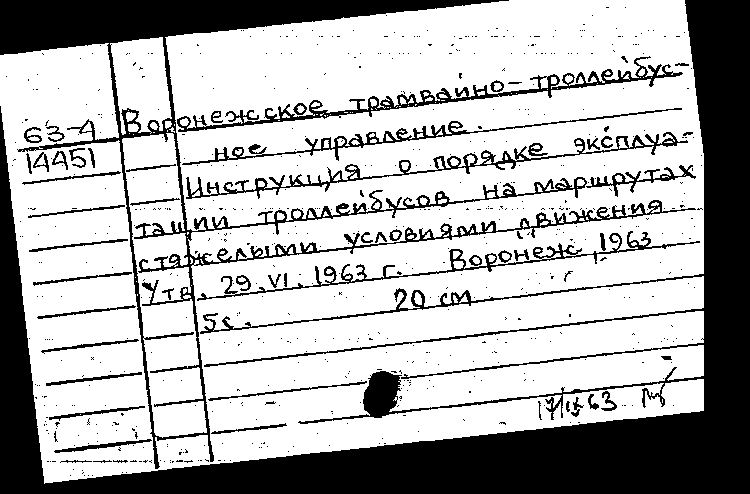 63-4
14451
Воронежское трамвайно-троллейбус-
ное управление.
Инструкция о порядке эксплуа-
тации троллейбусов на маршрутах
с тяжелыми условиями движения.
Утв. 29.VI.1963 г. Воронеж, 1963.
5 с. 20 см.
17/IX-63